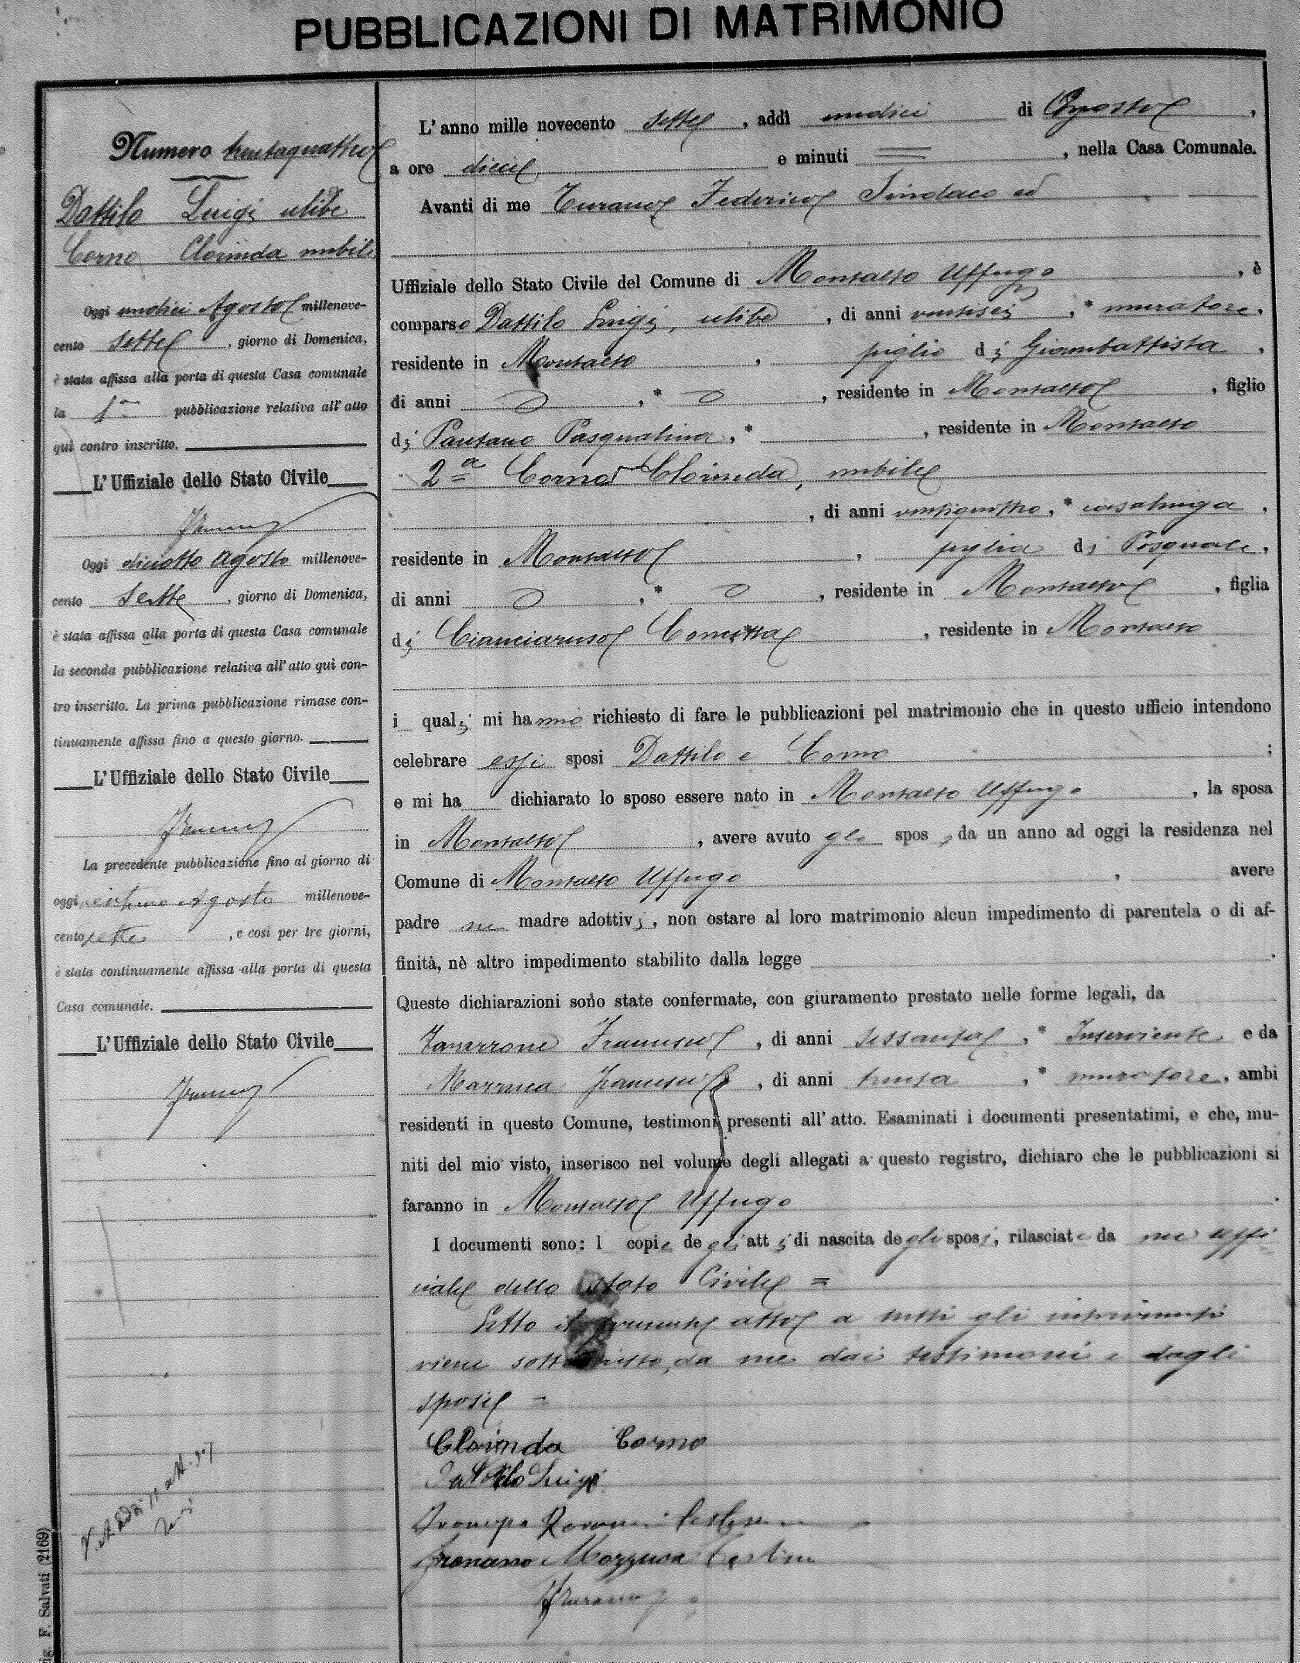 PUBBLICAZIONI DI MATRIMONIO
Numero trentaquattro
Dattilo Luigi celibe
Corno Clorinda nubile
Oggi undici Agosto millenove-
cento sette, giorno di Domenica,
è stata affissa alla porta di questa Casa comunale
la 1ª pubblicazione relativa all'atto
qui contro inscritto.
L'Uffiziale dello Stato Civile
Oggi diciotto Agosto millenove-
cento sette, giorno di Domenica,
è stata affissa alla porta di questa Casa comunale
la seconda pubblicazione relativa all'atto qui con-
tro inscritto. La prima pubblicazione rimase con-
tinuamente affissa fino a questo giorno.
L'Uffiziale dello Stato Civile
La precedente pubblicazione fino al giorno di
oggi ventuno Agosto millenove-
cento sette, e così per tre giorni,
è stata continuamente affissa alla porta di questa
Casa comunale.
L'Uffiziale dello Stato Civile
L'anno mille novecento sette, addì undici di Agosto,
a ore dieci e minuti =, nella Casa Comunale.
Avanti di me Turano Federico Sindaco ed
Uffiziale dello Stato Civile del Comune di Montalto Uffugo, è
comparso Dattilo Luigi, celibe, di anni ventisei, * muratore,
residente in Montalto, figlio di Giambattista,
di anni , * , residente in Montalto, figlio
di Pantano Pasqualina, * , residente in Montalto
2ª Corno Clorinda, nubile
, di anni ventiquattro, * casalinga,
residente in Montalto, figlia di Pasquale,
di anni , * , residente in Montalto, figlia
di Cianciaruso , residente in Montalto
i quali mi hanno richiesto di fare le pubblicazioni pel matrimonio che in questo ufficio intendono
celebrare essi sposi Dattilo e Corno ;
e mi ha dichiarato lo sposo essere nato in Montalto Uffugo, la sposa
in Montalto, avere avuto gli spos , da un anno ad oggi la residenza nel
Comune di Montalto Uffugo , avere
padre ne madre adottivi, non ostare al loro matrimonio alcun impedimento di parentela o di af-
finità, nè altro impedimento stabilito dalla legge .
Queste dichiarazioni sono state confermate, con giuramento prestato nelle forme legali, da
Francesco, di anni sessanta, * Inserviente e da
Mazzuca Francesco, di anni trenta, * muratore, ambi
residenti in questo Comune, testimoni presenti all'atto. Esaminati i documenti presentatimi, e che, mu-
niti del mio visto, inserisco nel volume degli allegati a questo registro, dichiaro che le pubblicazioni si
faranno in Montalto Uffugo .
I documenti sono: 1 copie degli atti di nascita degli sposi, rilasciate da me uffi
ciale dello Stato Civile =
Letto il presente atto a tutti gli intervenuti
viene sottoscritto da me dai testimoni e dagli
sposi =
Clorinda Corno
Dattilo Luigi
Mazzuca
Turano
ig. F. Salvati (2169)